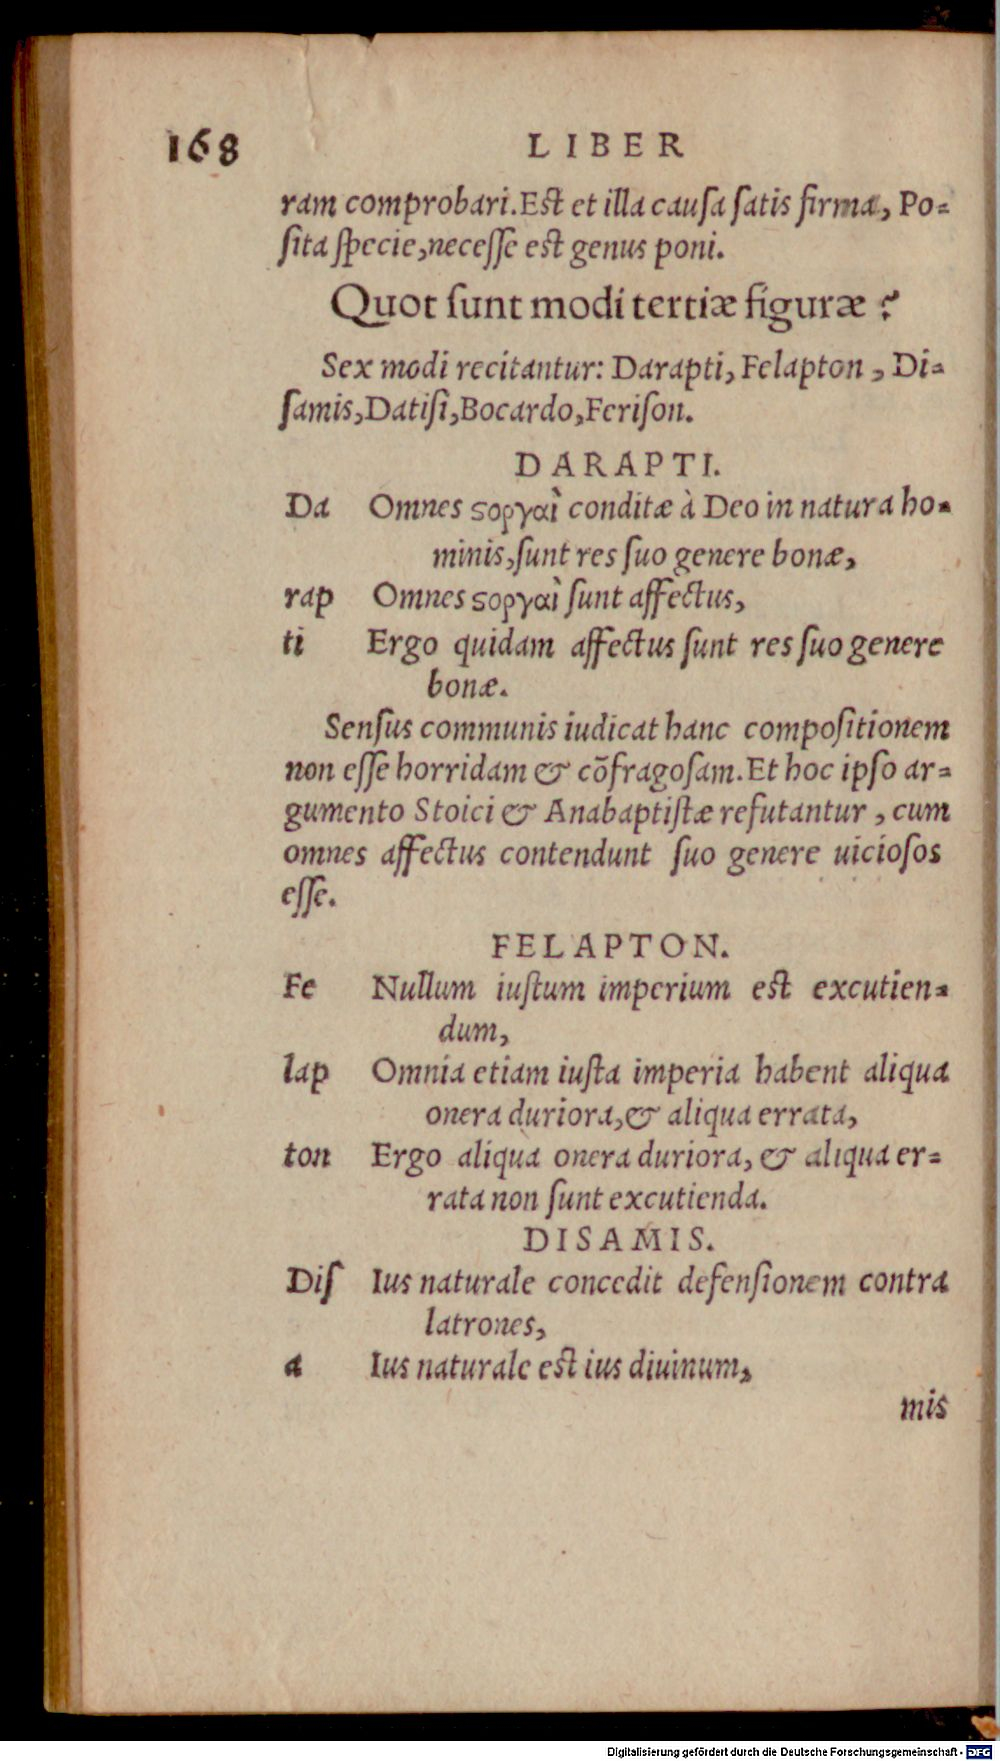 168 LIBER
ram comprobari. Eſt et illa cauſa ſatis firma, Po-
ſita ſpecie, neceſſe eſt genus poni.
Quot ſunt modi tertiæ figuræ?
Sex modi recitantur: Darapti, Felapton, Di-
ſamis, Datiſi, Bocardo, Feriſon.
DARAPTI.
Da Omnes ϛοργαὶ conditæ à Deo in natura ho-
minis, ſunt res ſuo genere bonæ,
rap Omnes ϛοργαὶ ſunt affectus,
ti Ergo quidam affectus ſunt res ſuo genere
bonæ.
Senſus communis iudicat hanc compoſitionem
non eſſe horridam & cōfragoſam. Et hoc ipſo ar-
gumento Stoici & Anabaptiſtæ refutantur, cum
omnes affectus contendunt ſuo genere uicioſos
eſſe.
FELAPTON.
Fe Nullum iuſtum imperium eſt excutien-
dum,
lap Omnia etiam iuſta imperia habent aliqua
onera duriora, & aliqua errata,
ton Ergo aliqua onera duriora, & aliqua er-
rata non ſunt excutienda.
DISAMIS.
Diſ Ius naturale concedit defenſionem contra
latrones,
a Ius naturale eſt ius diuinum,
mis
Digitalisierung gefördert durch die Deutsche Forschungsgemeinschaft - DFG